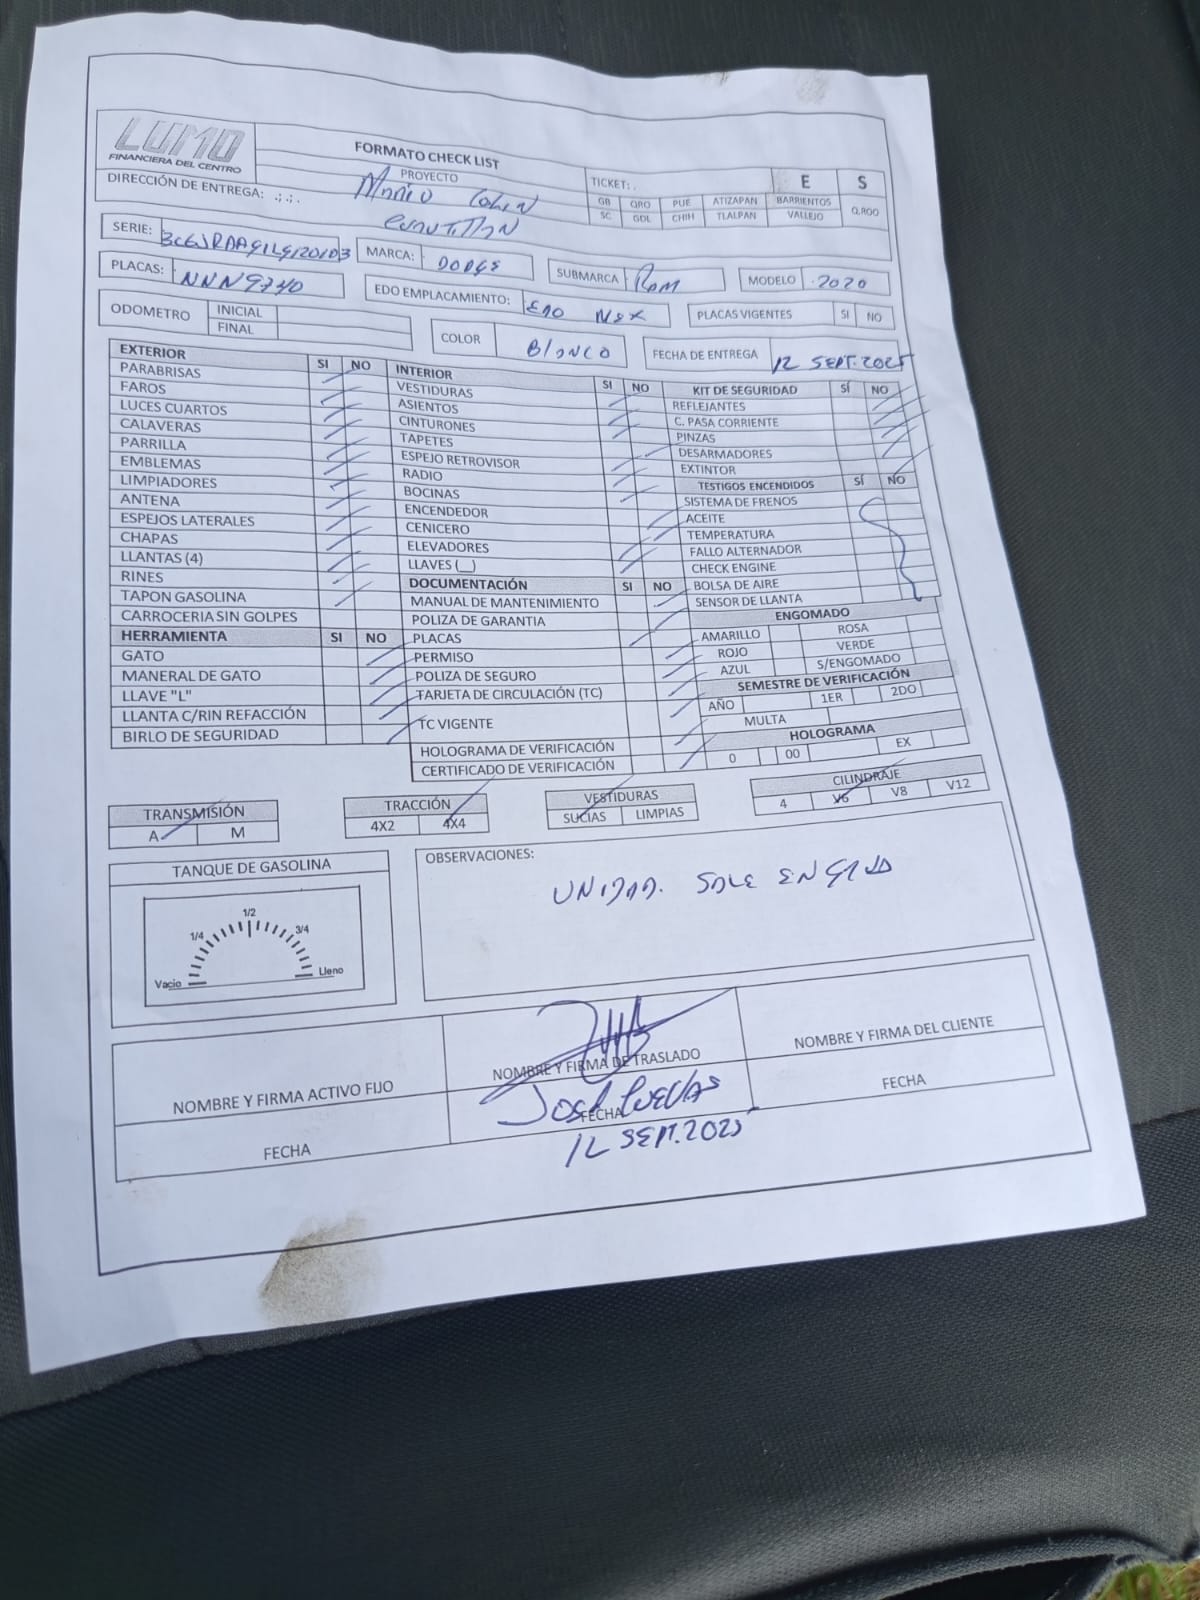 LUMO
FINANCIERA DEL CENTRO
FORMATO CHECK LIST
PROYECTO
DIRECCIÓN DE ENTREGA: .;.;.
TICKET: .
E S
GB QRO PUE ATIZAPAN BARRIENTOS Q.ROO
SC GDL CHIH TLALPAN VALLEJO
SERIE:
MARCA: DODGE
SUBMARCA RAM
MODELO 2020
PLACAS: NNN9740
EDO EMPLACAMIENTO: EDO MEX
PLACAS VIGENTES SI NO
ODOMETRO INICIAL
FINAL
COLOR BlANCO
FECHA DE ENTREGA 12 SEPT.2025
EXTERIOR SI NO
PARABRISAS
FAROS
LUCES CUARTOS
CALAVERAS
PARRILLA
EMBLEMAS
LIMPIADORES
ANTENA
ESPEJOS LATERALES
CHAPAS
LLANTAS (4)
RINES
TAPON GASOLINA
CARROCERIA SIN GOLPES
HERRAMIENTA SI NO
GATO
MANERAL DE GATO
LLAVE "L"
LLANTA C/RIN REFACCIÓN
BIRLO DE SEGURIDAD
INTERIOR SI NO
VESTIDURAS
ASIENTOS
CINTURONES
TAPETES
ESPEJO RETROVISOR
RADIO
BOCINAS
ENCENDEDOR
CENICERO
ELEVADORES
LLAVES (__)
DOCUMENTACIÓN SI NO
MANUAL DE MANTENIMIENTO
POLIZA DE GARANTIA
PLACAS
PERMISO
POLIZA DE SEGURO
TARJETA DE CIRCULACIÓN (TC)
TC VIGENTE
HOLOGRAMA DE VERIFICACIÓN
CERTIFICADO DE VERIFICACIÓN
KIT DE SEGURIDAD SÍ NO
REFLEJANTES
C. PASA CORRIENTE
PINZAS
DESARMADORES
EXTINTOR
TESTIGOS ENCENDIDOS SÍ NO
SISTEMA DE FRENOS
ACEITE
TEMPERATURA
FALLO ALTERNADOR
CHECK ENGINE
BOLSA DE AIRE
SENSOR DE LLANTA
ENGOMADO
AMARILLO ROSA
ROJO VERDE
AZUL S/ENGOMADO
SEMESTRE DE VERIFICACIÓN
AÑO 1ER 2DO
MULTA
HOLOGRAMA
0 00 EX
TRANSMISIÓN
A M
TRACCIÓN
4X2 4X4
VESTIDURAS
SUCIAS LIMPIAS
CILINDRAJE
4 V6 V8 V12
TANQUE DE GASOLINA
1/2
1/4 3/4
Vacio Lleno
OBSERVACIONES:
UNIDAD. SALE EN GRUA
NOMBRE Y FIRMA ACTIVO FIJO
FECHA
NOMBRE Y FIRMA DE TRASLADO
José Cuevas
FECHA
12 SEPT.2025
NOMBRE Y FIRMA DEL CLIENTE
FECHA